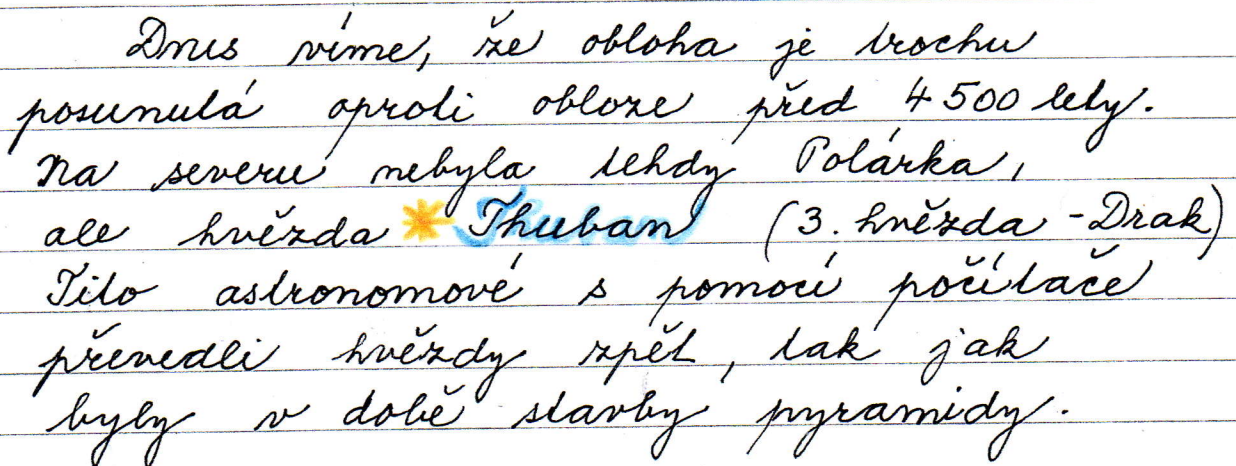 Dnes víme, že obloha je trochu
posunutá oproti obloze před 4 500 lety.
Na severu nebyla tehdy Polárka,
ale hvězda Thuban (3. hvězda - Drak)
Tito astronomové s pomocí počítače
převedli hvězdy zpět, tak jak
byly v době stavby pyramidy.